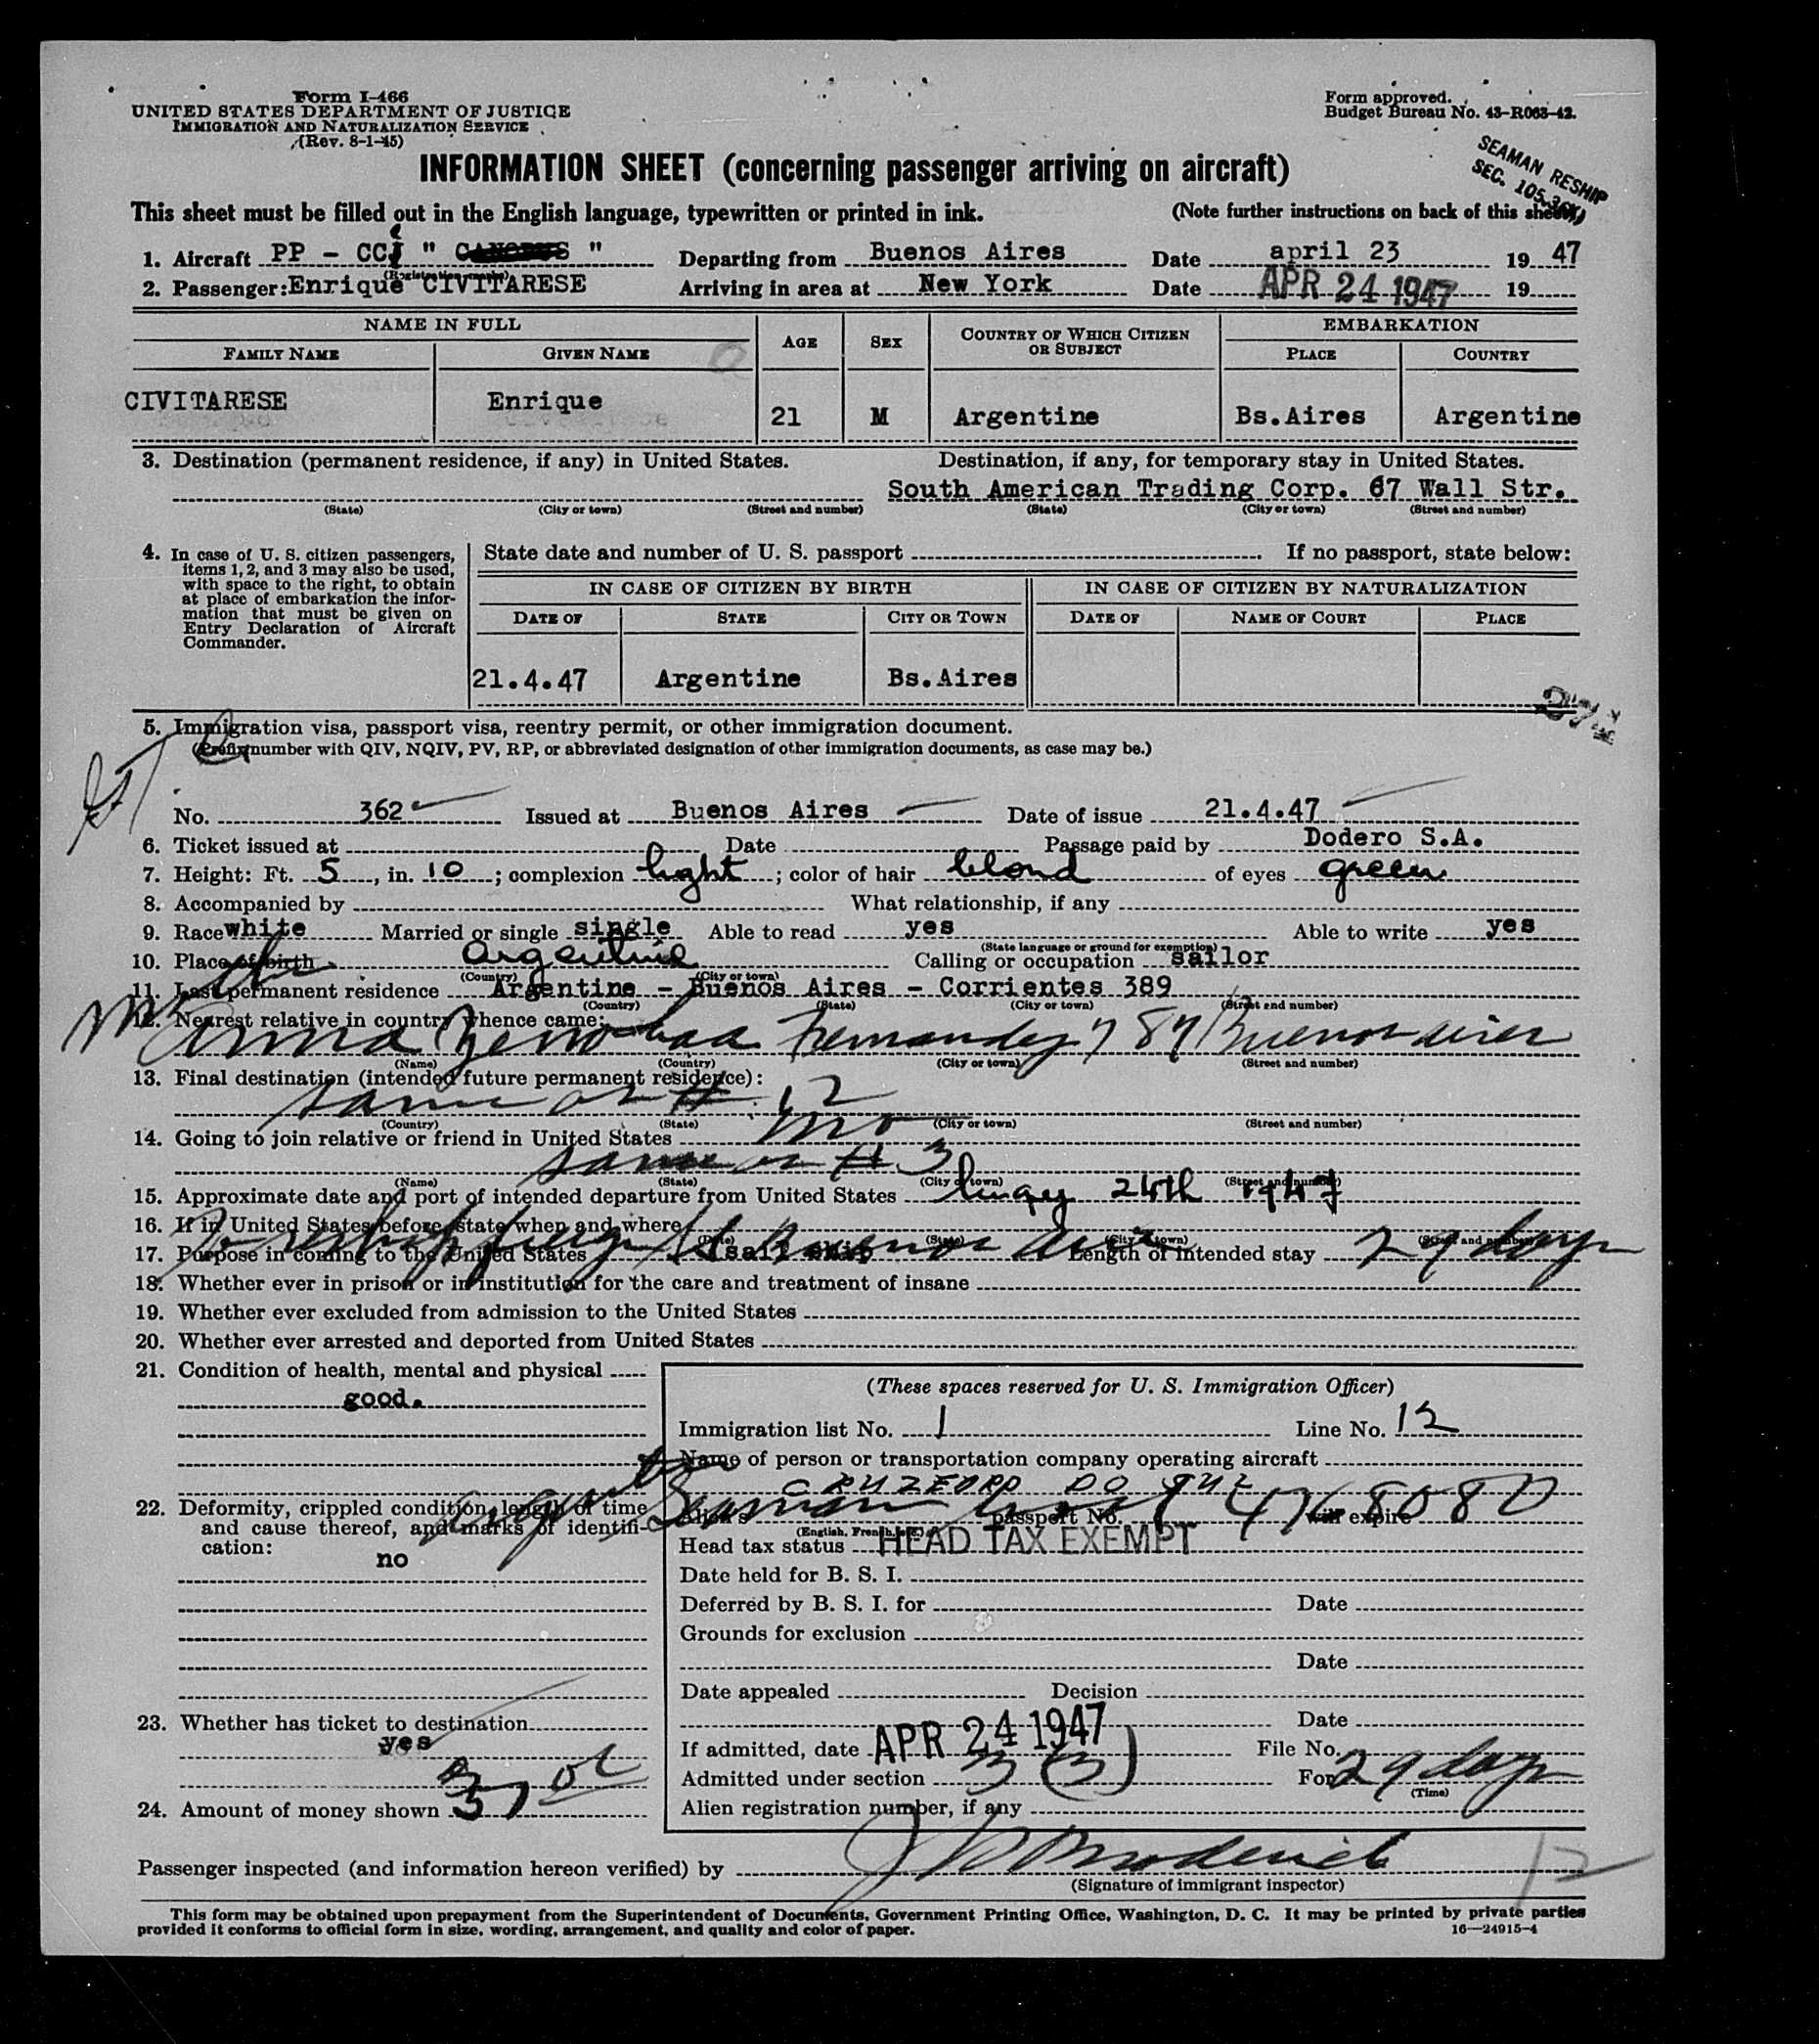 Form I-466
UNITED STATES DEPARTMENT OF JUSTICE
IMMIGRATION AND NATURALIZATION SERVICE
(Rev. 8-1-45)
Form approved.
Budget Bureau No. 43-R063-42.
SEAMAN RESHIP
SEC. 105.3
INFORMATION SHEET (concerning passenger arriving on aircraft)
This sheet must be filled out in the English language, typewritten or printed in ink. (Note further instructions on back of this sheet.)
1. Aircraft PP - CC " " Departing from Buenos Aires Date april 23 19 47
(Registration marks)
2. Passenger: Enrique CIVITARESE Arriving in area at New York Date APR 24 1947 19
NAME IN FULL AGE SEX COUNTRY OF WHICH CITIZEN OR SUBJECT EMBARKATION
FAMILY NAME GIVEN NAME PLACE COUNTRY
CIVITARESE Enrique 21 M Argentine Bs.Aires Argentine
3. Destination (permanent residence, if any) in United States. Destination, if any, for temporary stay in United States.
South American Trading Corp. 67 Wall Str.
(State) (City or town) (Street and number) (State) (City or town) (Street and number)
4. In case of U. S. citizen passengers, items 1, 2, and 3 may also be used, with space to the right, to obtain at place of embarkation the information that must be given on Entry Declaration of Aircraft Commander.
State date and number of U. S. passport If no passport, state below:
IN CASE OF CITIZEN BY BIRTH IN CASE OF CITIZEN BY NATURALIZATION
DATE OF STATE CITY OR TOWN DATE OF NAME OF COURT PLACE
21.4.47 Argentine Bs.Aires
5. Immigration visa, passport visa, reentry permit, or other immigration document.
(Prefix number with QIV, NQIV, PV, RP, or abbreviated designation of other immigration documents, as case may be.)
No. 362 Issued at Buenos Aires Date of issue 21.4.47
6. Ticket issued at Date Passage paid by Dodero S.A.
7. Height: Ft. 5, in. 10; complexion light; color of hair blond of eyes green
8. Accompanied by What relationship, if any
9. Race white Married or single single Able to read yes Able to write yes
(State language or ground for exemption)
10. Place of birth Argentine Calling or occupation sailor
(Country) (City or town)
11. Last permanent residence Argentine - Buenos Aires - Corrientes 389
(Country) (State) (City or town) (Street and number)
12. Nearest relative in country whence came:
Buenos Aires
(Name) (Country) (City or town) (Street and number)
13. Final destination (intended future permanent residence):
same as # 12
(Country) (State) (City or town) (Street and number)
14. Going to join relative or friend in United States no
same as # 3
(Name) (State) (City or town) (Street and number)
15. Approximate date and port of intended departure from United States 24th 1947
16. If in United States before, state when and where
(Date) (State) (City or town) (Street and number)
17. Purpose in coming to the United States To reship foreign Buenos Aires Length of intended stay 29 days
18. Whether ever in prison or in institution for the care and treatment of insane
19. Whether ever excluded from admission to the United States
20. Whether ever arrested and deported from United States
21. Condition of health, mental and physical
good.
22. Deformity, crippled condition, length of time and cause thereof, and marks of identification:
no
23. Whether has ticket to destination
yes
24. Amount of money shown
(These spaces reserved for U. S. Immigration Officer)
Immigration list No. 1 Line No. 12
Name of person or transportation company operating aircraft
CRUZEIRO DO SUL
Alien's Seaman passport No. will expire
(English, French, etc.)
Head tax status HEAD TAX EXEMPT
Date held for B. S. I.
Deferred by B. S. I. for Date
Grounds for exclusion
Date
Date appealed Decision
Date
If admitted, date APR 24 1947 File No.
Admitted under section 3 (3) For 29 days
(Time)
Alien registration number, if any
Passenger inspected (and information hereon verified) by
(Signature of immigrant inspector)
12
This form may be obtained upon prepayment from the Superintendent of Documents, Government Printing Office, Washington, D. C. It may be printed by private parties
provided it conforms to official form in size, wording, arrangement, and quality and color of paper. 16—24915-4